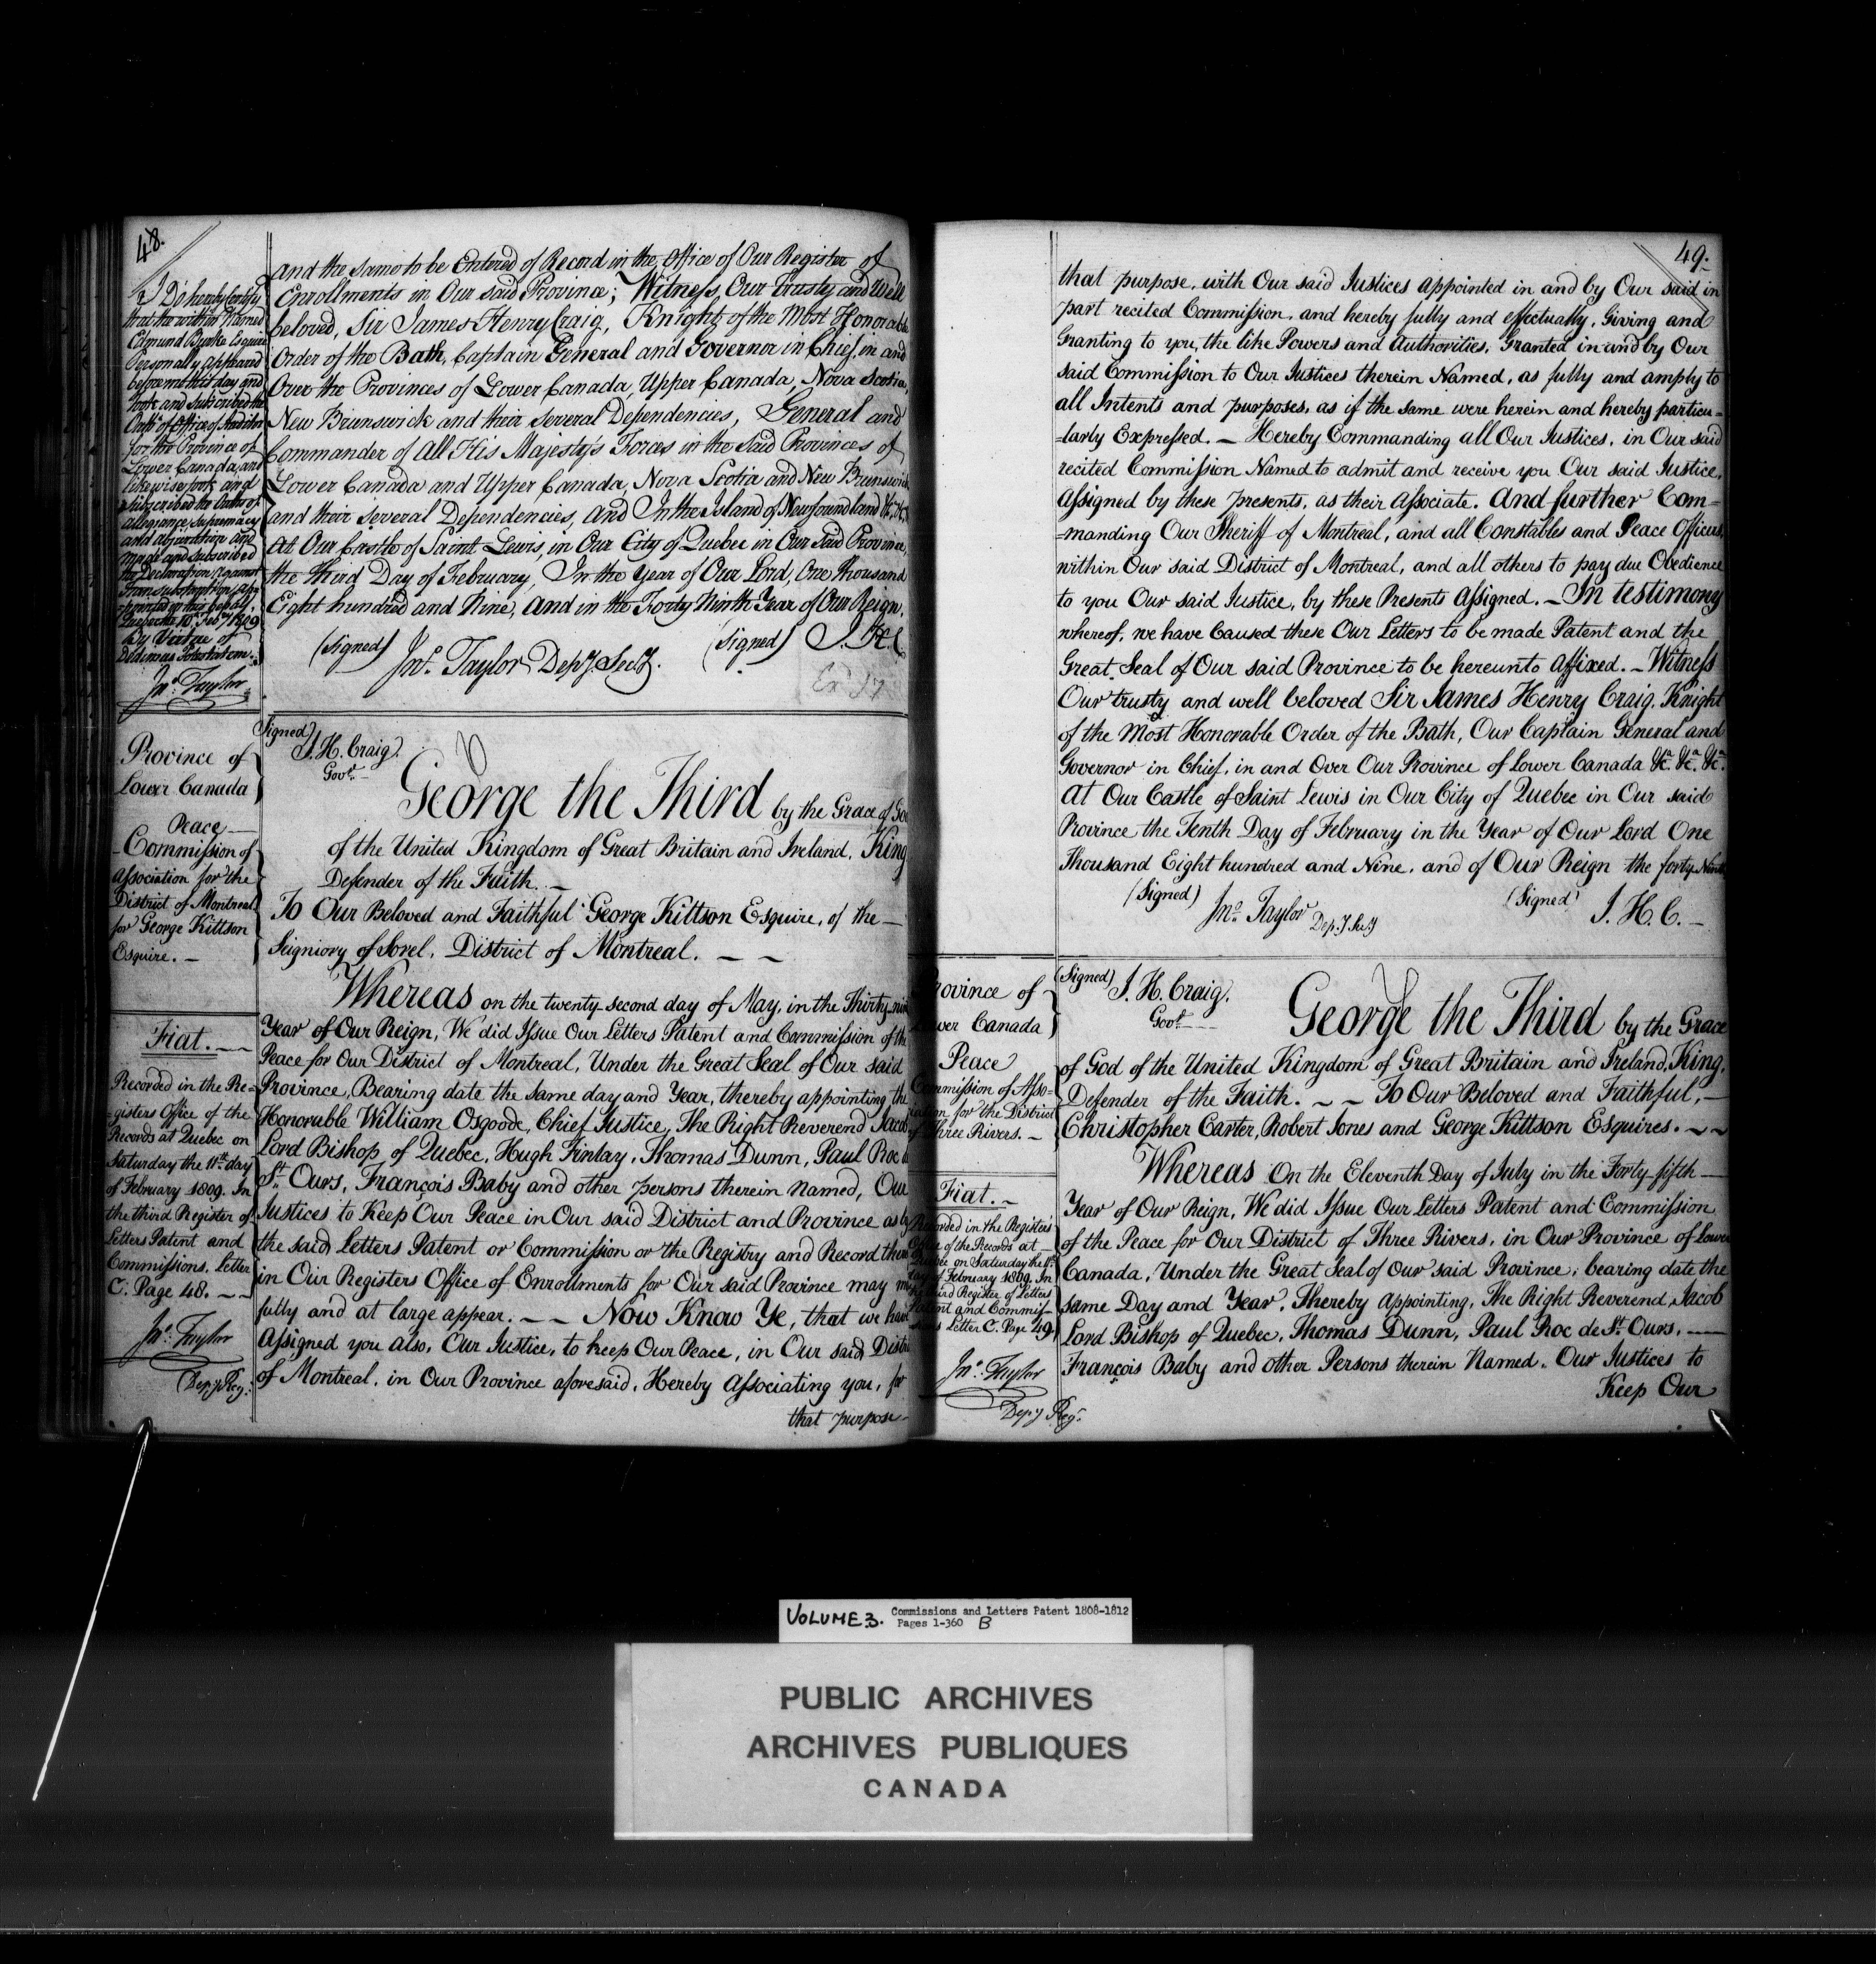 48.
I Do hereby Certify
that the within Named
Edmund Burke Esquire
Personally appeared
before me this day and
took and subscribed the
Oath of Office of Auditor
for the Province of
Lower Canada, and
likewise took and
subscribed the Oaths of
Allegiance, Supremacy
and Abjuration and
made and subscribed
the Declaration against
Transubstantiation, app
pointed in this behalf.
Quebec the 10th Feby 1809
By Virtue of
Dedimus Potestatem.
Jno. Taylor
and the same to be Entered of Record in the Office of Our Register of
Enrollments in Our said Province; Witness Our Trusty and Well
beloved, Sir James Henry Craig, Knight of the Most Honorable
Order of the Bath, Captain General and Governor in Chief, in and
Over the Provinces of Lower Canada, Upper Canada, Nova Scotia,
New Brunswick and their several Dependencies, General and
Commander of All His Majesty's Forces in the said Provinces of
Lower Canada and Upper Canada, Nova Scotia and New Brunswick
and their several Dependencies, and In the Island of Newfoundland &c. &c.
At Our Castle of Saint Lewis, in Our City of Quebec in Our said Province,
the Third Day of February, In the Year of Our Lord, One thousand
Eight hundred and Nine, and in the Forty Ninth Year of Our Reign.
(signed) Jno. Taylor Depy. Secy. (signed) J. H. C
Province of
Lower Canada
Peace
Commission of
Association for the
District of Montreal
for George Kittson
Esquire. -
Fiat.
Recorded in the Re=
=gisters Office of the
Records at Quebec on
Saturday the 11th day
of February 1809. In
the third Register of
Letters Patent and
Commissions. Letter
C. Page 48.
Jno. Taylor
Depy Reg.
Signed)
J. H. Craig.
Govr.
George the Third by the Grace of God
of the United Kingdom of Great Britain and Ireland, King
Defender of the Faith. -
To Our Beloved and Faithful George Kittson Esquire, of the
Seigniory of Sorel, District of Montreal.
Whereas on the twenty second day of May, in the Thirty nin
Year of Our Reign, We did Issue Our Letters Patent and Commission of the
Peace for Our District of Montreal, Under the Great Seal of Our said
Province, Bearing date the same day and Year, thereby appointing the
Honorable William Osgoode, Chief Justice, The Right Reverend Jacob
Lord Bishop of Quebec, Hugh Finlay, Thomas Dunn, Paul Roc de
St. Ours, François Baby and other persons therein named, Our
Justices to Keep Our Peace in Our said District and Province as by
the said Letters Patent or Commission or the Registry and Record there
in Our Registers Office of Enrollments for Our said Province may more
fully and at large appear. - - Now Know Ye, that we have
Assigned you also, Our Justice, to keep Our Peace, in Our said District
of Montreal, in Our Province aforesaid, Hereby Associating you, for
that purpose
49.
that purpose, with Our said Justices appointed in and by Our said in
part recited Commission, and hereby fully and effectually, Giving and
Granting to you, the like Powers and Authorities, Granted in and by Our
said Commission to Our Justices therein Named, as fully and amply to
all Intents and purposes, as if the same were herein and hereby particu=
=larly Expressed. - Hereby Commanding all Our Justices, in Our said
recited Commission Named to admit and receive you Our said Justice,
Assigned by these presents, as their Associate. And further Com=
=manding Our Sheriff of Montreal, and all Constables and Peace Officers,
within Our said District of Montreal, and all others to pay due Obedience
to you Our said Justice, by these Presents Assigned. - In testimony
whereof, we have Caused these Our Letters to be made Patent and the
Great Seal of Our said Province to be hereunto affixed. - Witness
Our trusty and well beloved Sir James Henry Craig, Knight
of the Most Honorable Order of the Bath, Our Captain General and
Governor in Chief, in and Over Our Province of Lower Canada &c. &c. &c.
At Our Castle of Saint Lewis in Our City of Quebec in Our said
Province the Tenth Day of February in the Year of Our Lord One
Thousand Eight hundred and Nine, and of Our Reign the forty Ninth
(Signed) Jno. Taylor Depy Secy (Signed) J. H. C. -
Province of
Lower Canada
Peace
Commission of Asso-
ciation for the District
of Three Rivers. -
Fiat. -
Recorded in the Registers
Office of the Records at
Quebec on Saturday the 11th
day of February 1809. In
the third Register of Letters
Patent and Commis-
sions Letter C. Page 49.
Jno. Taylor
Depy Reg.
(Signed) J. H. Craig.
Govr.
George the Third by the Grace
of God of the United Kingdom of Great Britain and Ireland, King,
Defender of the Faith. - - To Our Beloved and Faithful,
Christopher Carter, Robert Jones and George Kittson Esquires. - -
Whereas On the Eleventh Day of July in the Forty fifth
Year of Our Reign, We did Issue Our Letters Patent and Commission
of the Peace for Our District of Three Rivers, in Our Province of Lower
Canada, Under the Great Seal of Our said Province, bearing date the
same Day and Year, Thereby Appointing, The Right Reverend Jacob
Lord Bishop of Quebec, Thomas Dunn, Paul Roc de St. Ours,
François Baby and other Persons therein Named. Our Justices to
Keep Our
VOLUME 3. Commissions and Letters Patent 1808-1812
Pages 1-360 B
PUBLIC ARCHIVES
ARCHIVES PUBLIQUES
CANADA